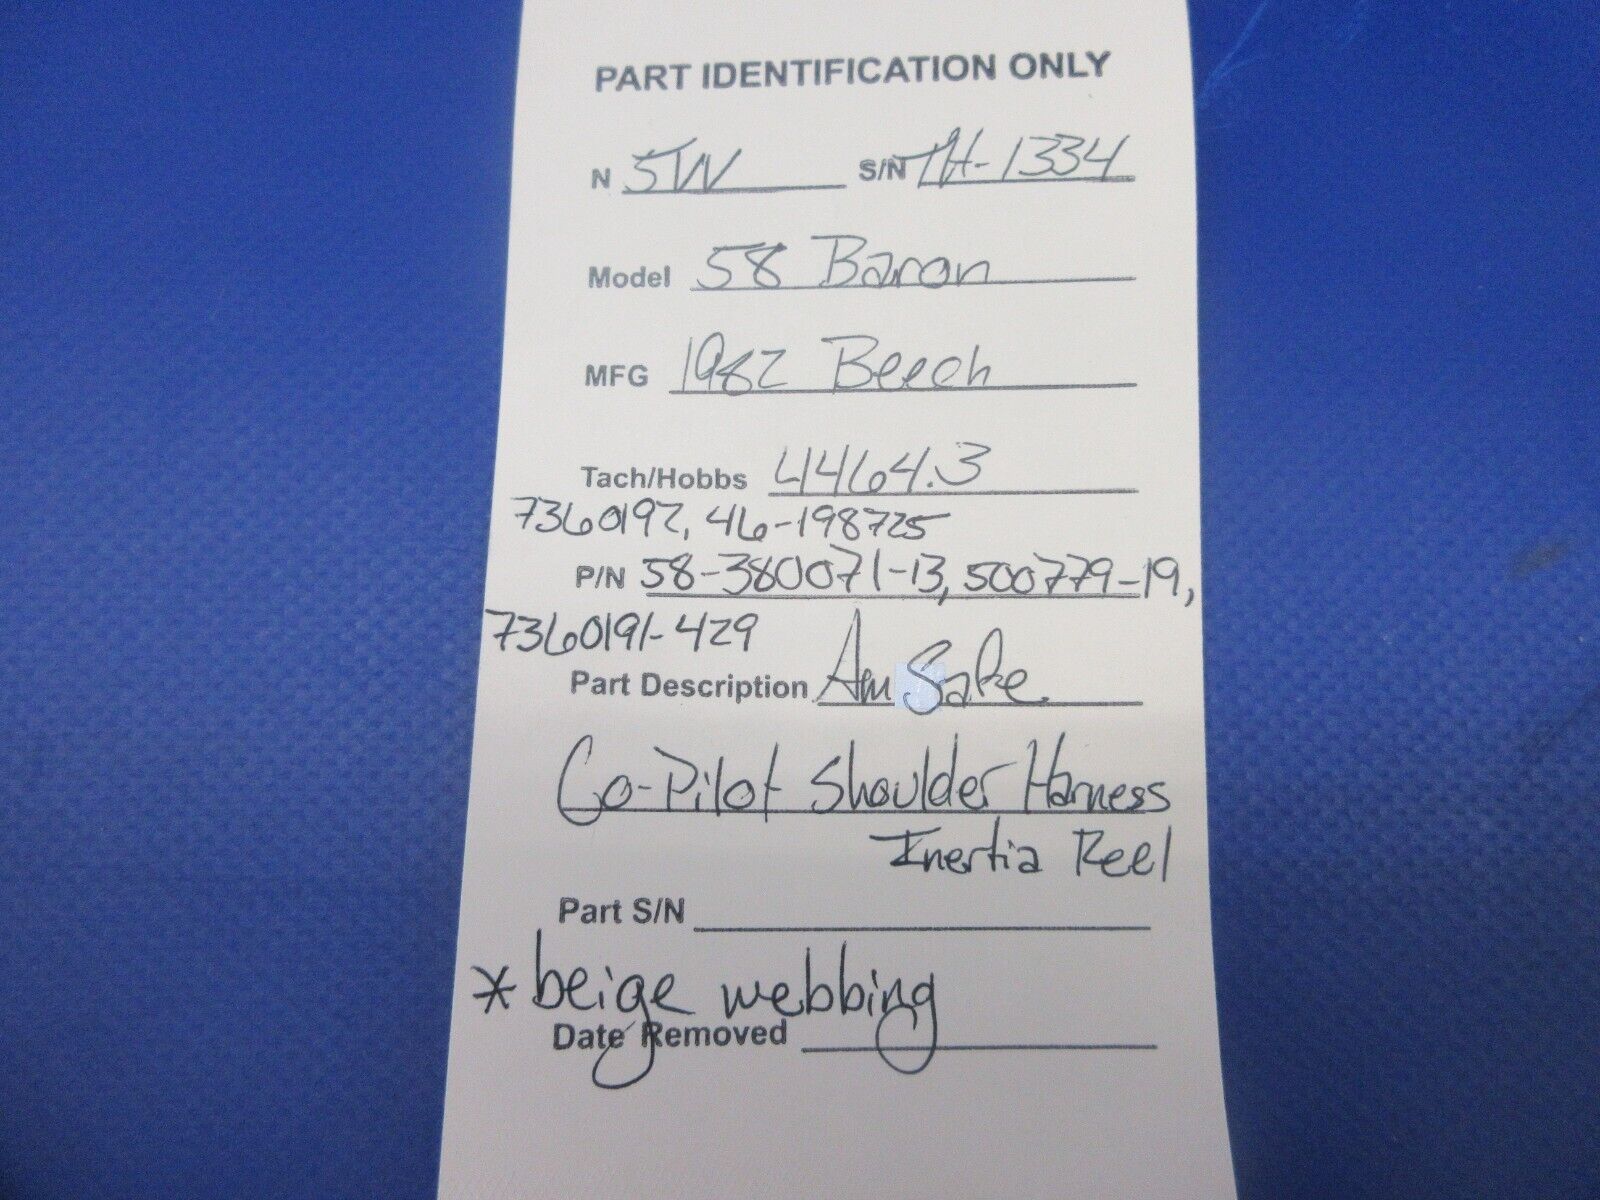 PART IDENTIFICATION ONLY
N 5TW S/N TH-1334
Model 58 Baron
MFG 1982 Beech
Tach/Hobbs 4464.3
7360192, 46-198725
P/N 58-380071-13, 500779-19,
7360191-429
Part Description Am Safe
Co-Pilot Shoulder Harness
Inertia Reel
Part S/N
* beige webbing
Date Removed